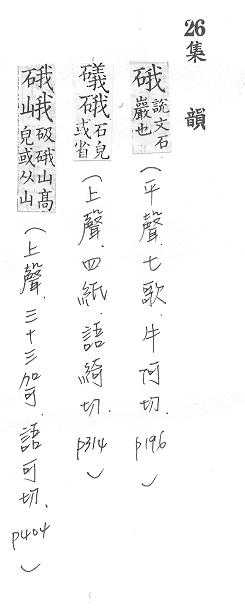 26集韻
硪說文石巖也(平聲.七歌.牛何切.p196)
礒硪石皃或省(上聲.四紙.語綺切.p314)
硪峨砐硪山高皃或从山(上聲.三十三哿.語可切.p404)